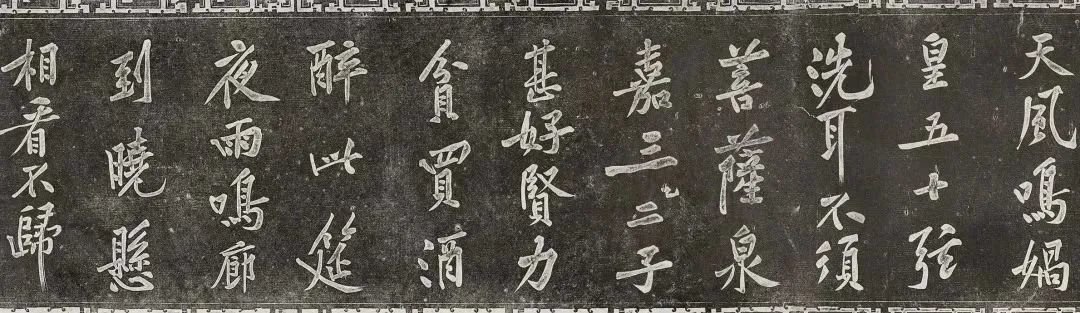 天風鳴媧
皇五十弦
洗耳不須
菩薩泉
嘉三二子
甚好賢力
貧買酒
醉此筵
夜雨鳴廊
到曉懸
相看不歸